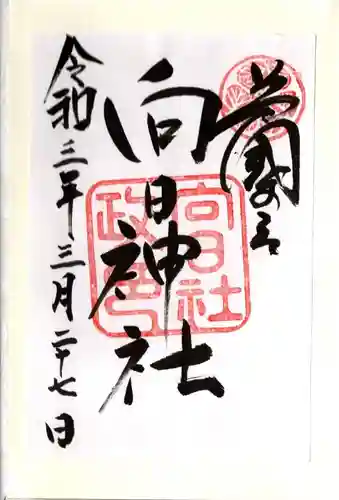 向日神社
向日社
政所
令和三年三月二十七日